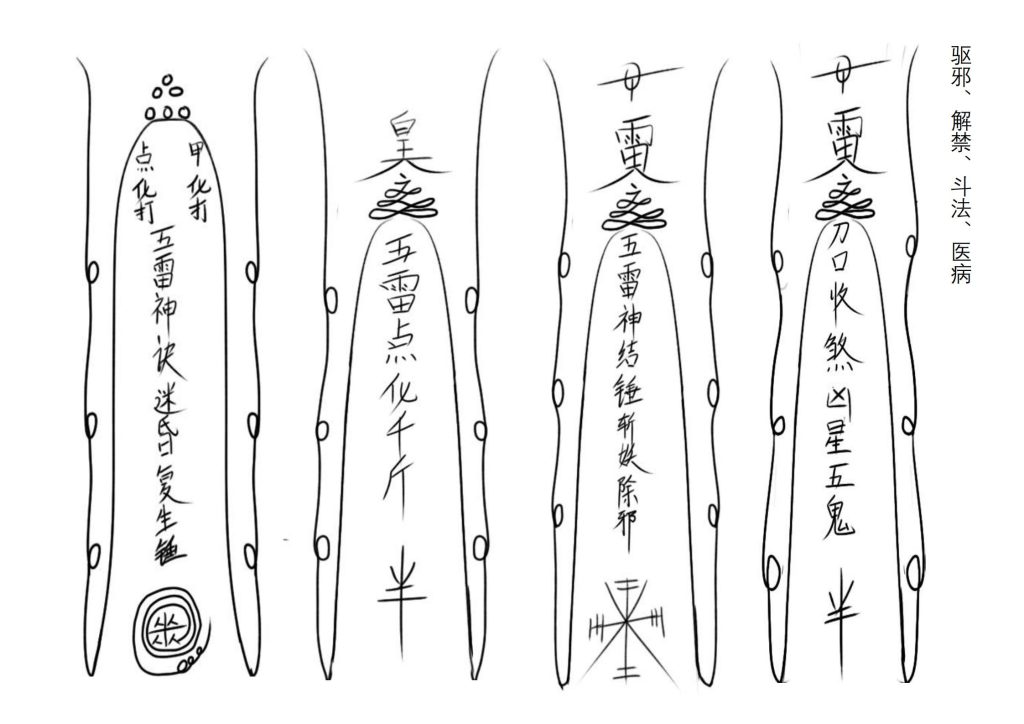 驱邪、解禁、斗法、医病
甲
雷
刀口收煞凶星五鬼
半
甲
雷
五雷神结锤斩妖除邪
五雷点化千斤
半
甲化打
点化打
五雷神诀迷昏复生锤